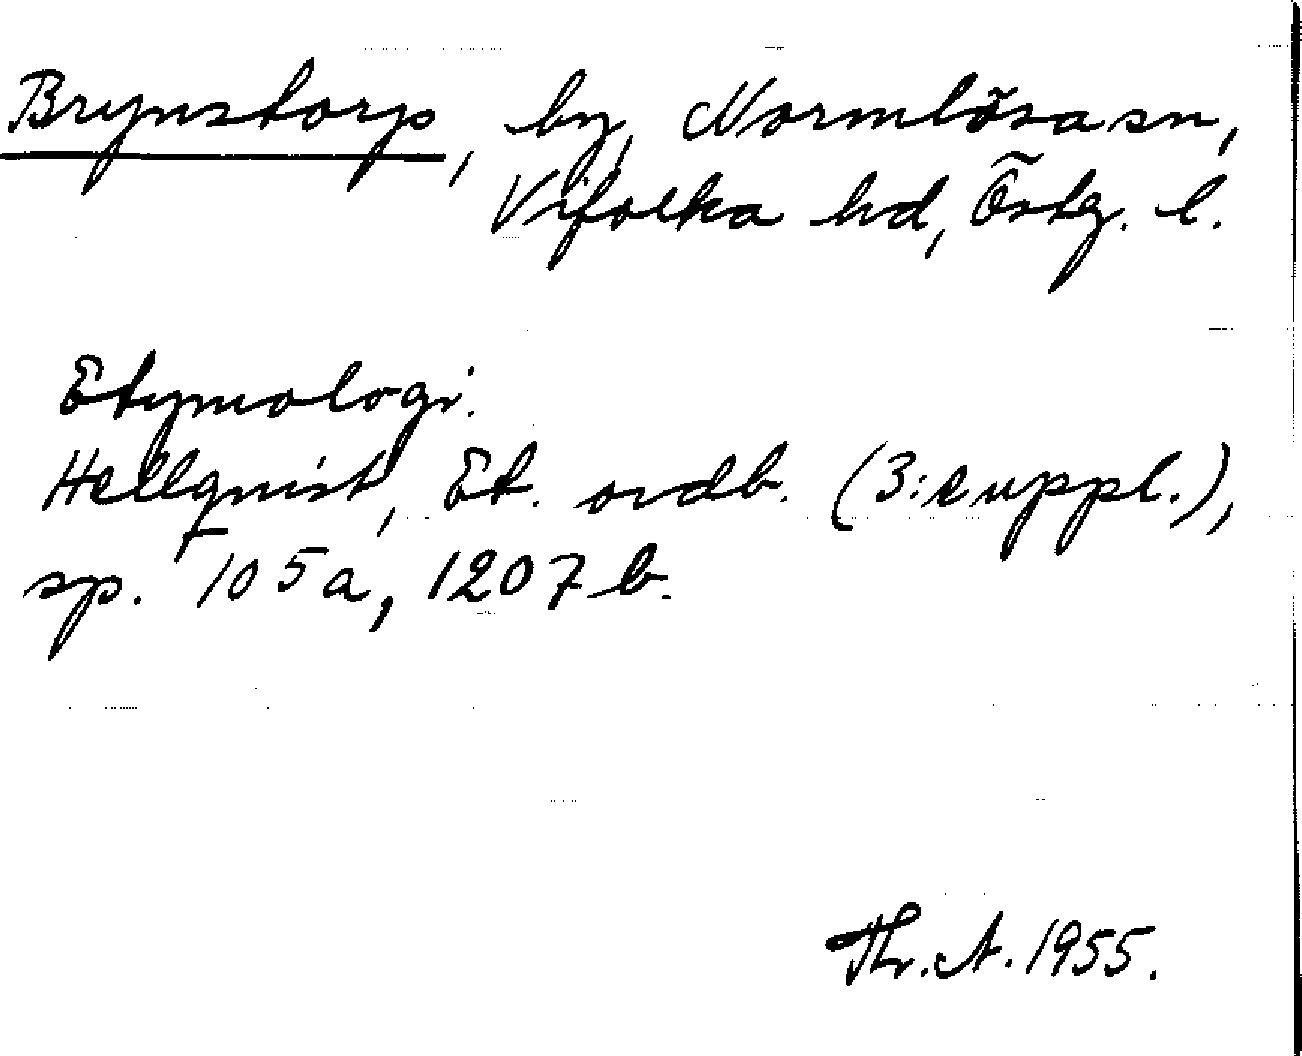 Brynstorp, by, Normlösa sn,
Vifolka hd, Östg. l.
Etymologi.
Hellquist, Et. ordb. (3:e uppl.),
sp. 105a, 1207 b.
Thr. A. 1955.